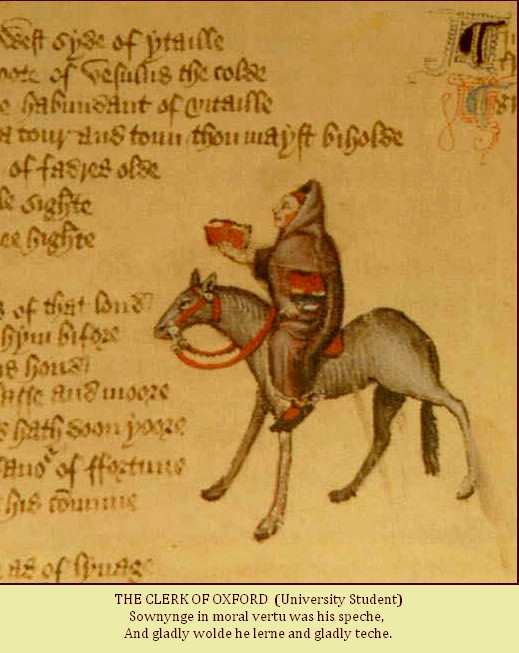 west syde of ytaille
oote of vesulus the colde
e habundant of vitaille
a tour and toun thou mayst biholde
of fadres olde
le sighte
ee highte
s of that lond
hym bifore
hond
and moore
s hath doon yoore
of ffortune
his comune
as of lynage
T
T
THE CLERK OF OXFORD (University Student)
Sownynge in moral vertu was his speche,
And gladly wolde he lerne and gladly teche.